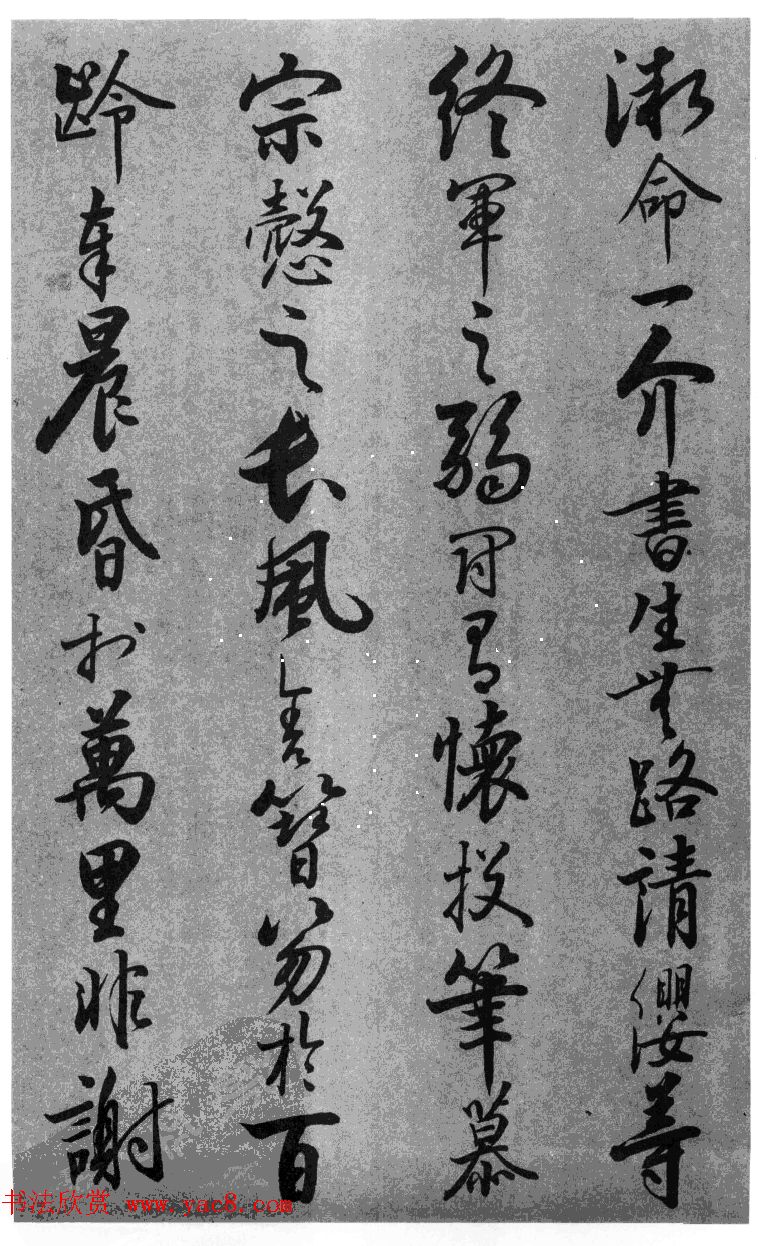 微命一介書生無路請纓等
終軍之弱冠有懷投筆慕
宗慤之長風舍簪笏於百
齡奉晨昏於萬里非謝
书法欣赏 www.yac8.com